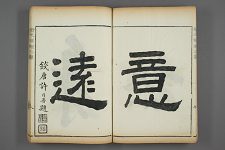 意
遠
錢唐許
題